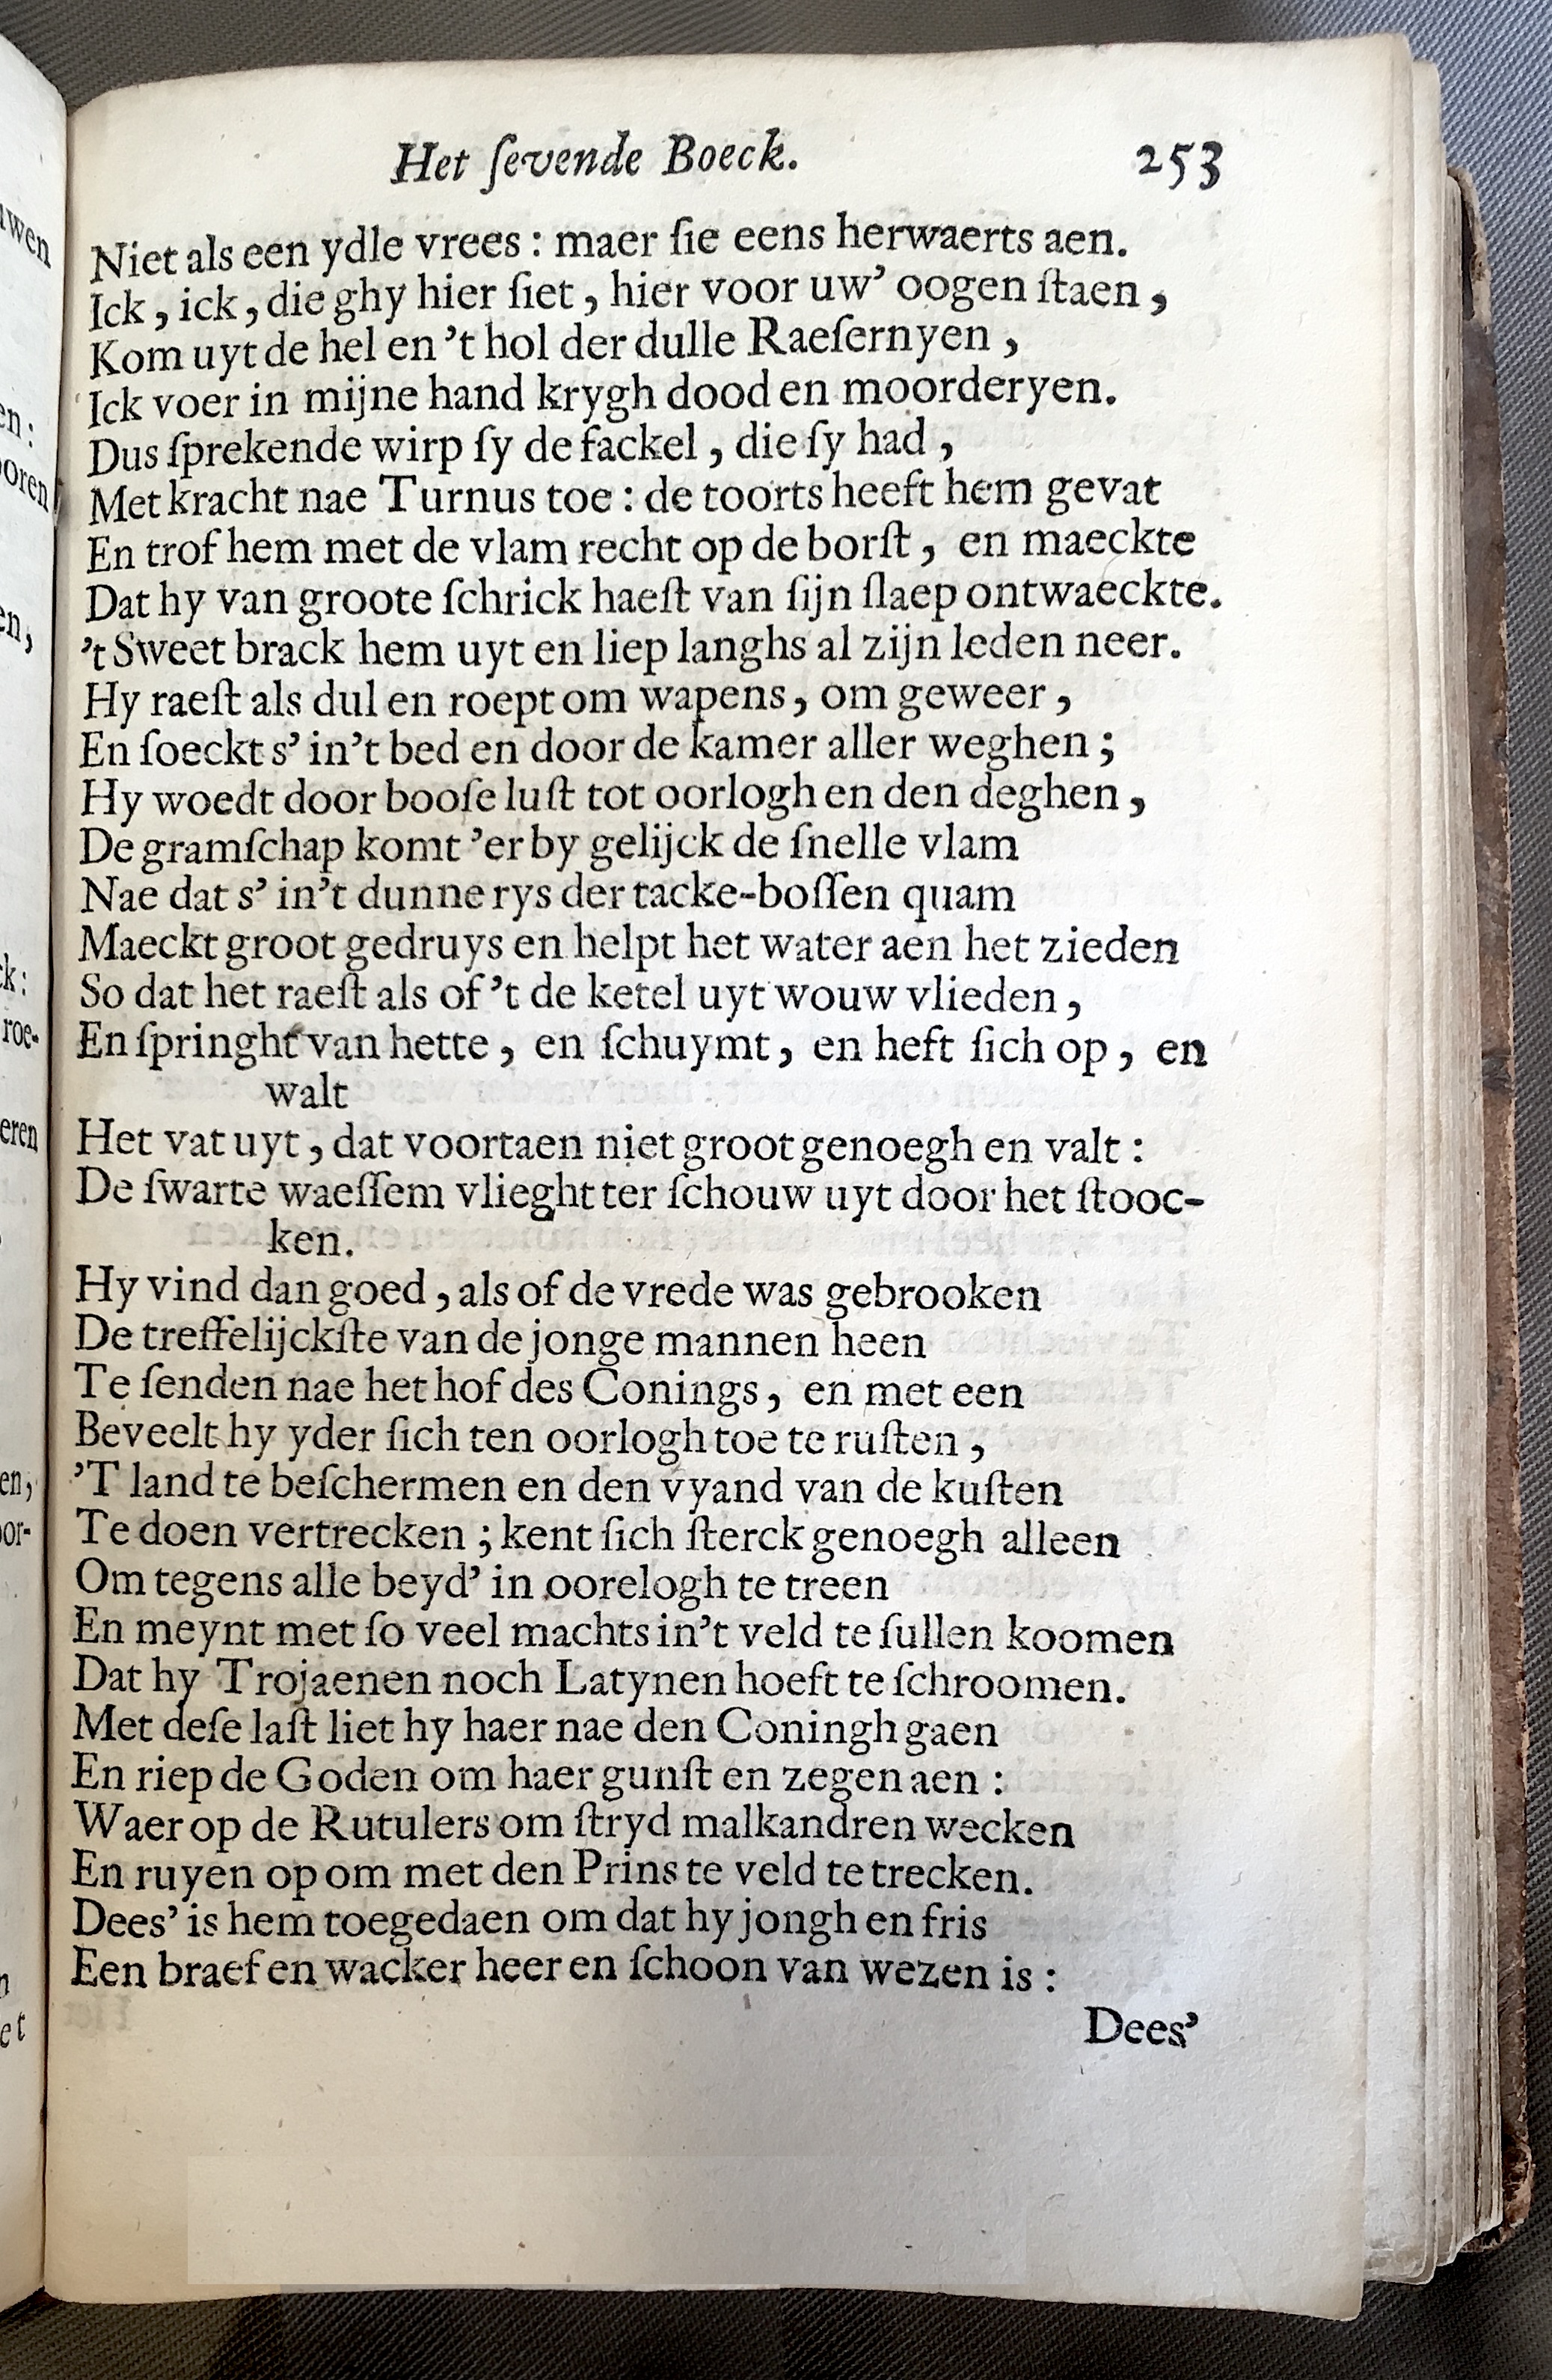 Het ſevende Boeck. 253
Niet als een ydle vrees : maer ſie eens herwaerts aen.
Ick , ick , die ghy hier ſiet , hier voor uw’ oogen ſtaen ,
Kom uyt de hel en ’t hol der dulle Raeſernyen ,
Ick voer in mijne hand krygh dood en moorderyen.
Dus ſprekende wirp ſy de fackel , die ſy had ,
Met kracht nae Turnus toe : de toorts heeft hem gevat
En trof hem met de vlam recht op de borſt , en maeckte
Dat hy van groote ſchrick haeſt van ſijn ſlaep ontwaeckte.
’t Sweet brack hem uyt en liep langhs al zijn leden neer.
Hy raeſt als dul en roept om wapens , om geweer ,
En ſoeckt s’ in’t bed en door de kamer aller weghen ;
Hy woedt door booſe luſt tot oorlogh en den deghen ,
De gramſchap komt ’er by gelijck de ſnelle vlam
Nae dat s’ in’t dunne rys der tacke-boſſen quam
Maeckt groot gedruys en helpt het water aen het zieden
So dat het raeſt als of ’t de ketel uyt wouw vlieden ,
En ſpringht van hette , en ſchuymt , en heft ſich op , en
walt
Het vat uyt , dat voortaen niet groot genoegh en valt :
De ſwarte waeſſem vlieght ter ſchouw uyt door het ſtooc-
ken.
Hy vind dan goed , als of de vrede was gebrooken
De treffelijckſte van de jonge mannen heen
Te ſenden nae het hof des Conings , en met een
Beveelt hy yder ſich ten oorlogh toe te ruſten ,
’T land te beſchermen en den vyand van de kuſten
Te doen vertrecken ; kent ſich ſterck genoegh alleen
Om tegens alle beyd’ in oorelogh te treen
En meynt met ſo veel machts in’t veld te ſullen koomen
Dat hy Trojaenen noch Latynen hoeft te ſchroomen.
Met deſe laſt liet hy haer nae den Coningh gaen
En riep de Goden om haer gunſt en zegen aen :
Waer op de Rutulers om ſtryd malkandren wecken
En ruyen op om met den Prins te veld te trecken.
Dees’ is hem toegedaen om dat hy jongh en fris
Een braef en wacker heer en ſchoon van wezen is :
Dees’